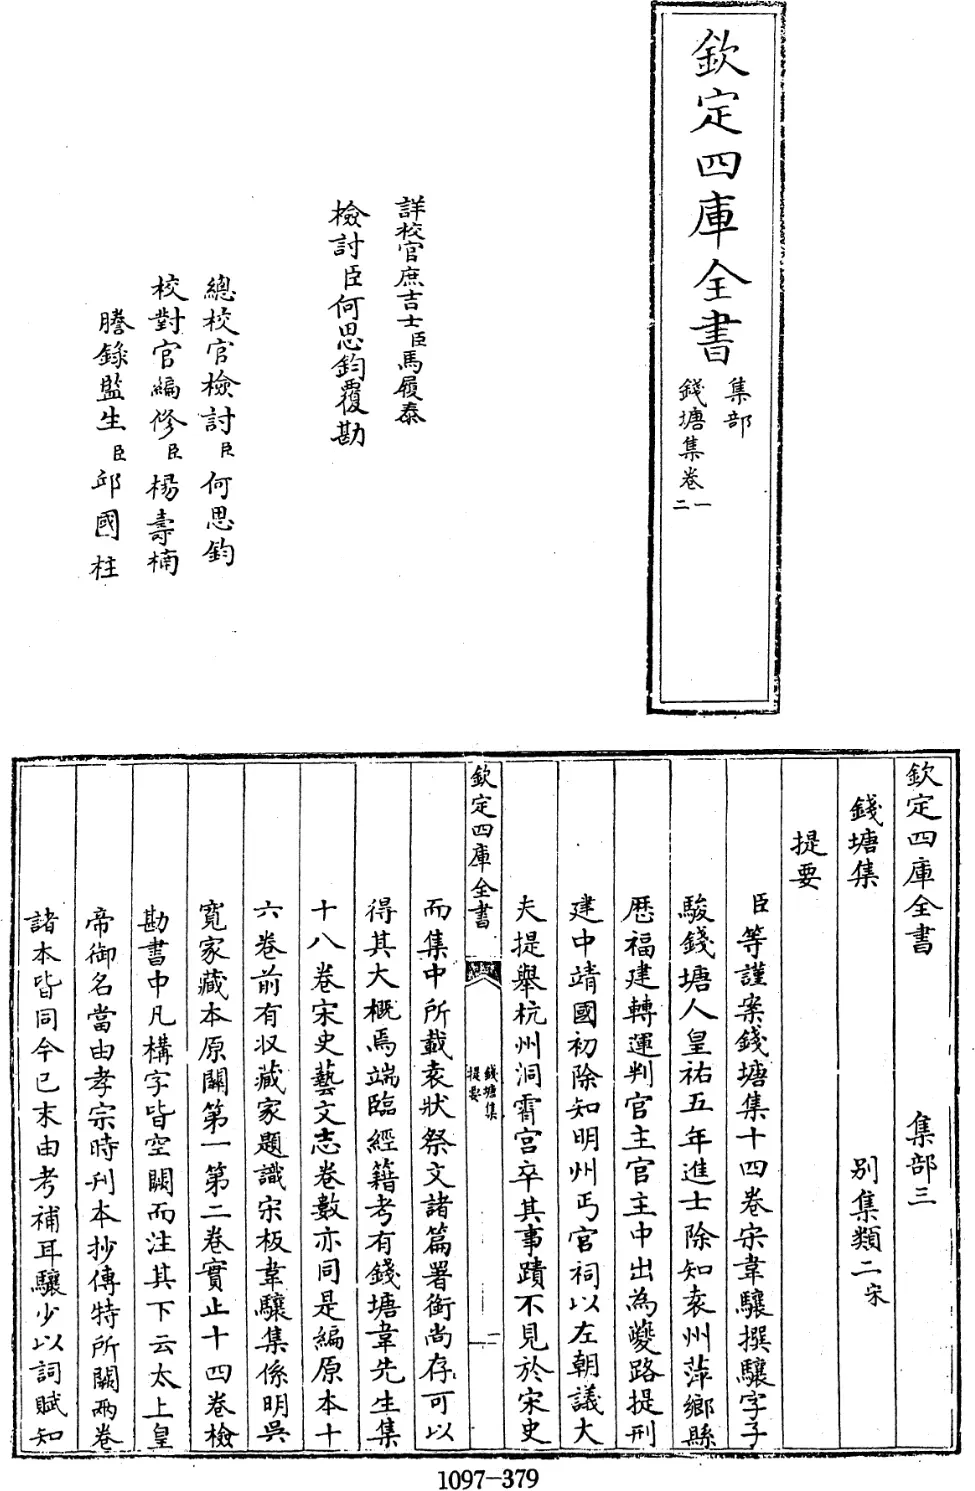 欽定四庫全書
集部
錢塘集卷一
二
詳校官庶吉士臣馬履泰
檢討臣何思鈞覆勘
總校官檢討臣何思鈞
校對官編修臣楊壽楠
謄錄監生臣邱國柱
欽定四庫全書 集部三
錢塘集 別集類二宋
提要
臣等謹案錢塘集十四卷宋韋驤撰驤字子
駿錢塘人皇祐五年進士除知袁州萍鄉縣
歷福建轉運判官主官主中出為夔路提刑
建中靖國初除知明州丐宮祠以左朝議大
夫提舉杭州洞霄宮卒其事蹟不見於宋史
欽定四庫全書
錢塘集
提要
一
而集中所載表狀祭文諸篇署銜尚存可以
得其大概焉端臨經籍考有錢塘韋先生集
十八卷宋史藝文志卷數亦同是編原本十
六卷前有收藏家題識宋板韋驤集係明吳
寬家藏本原闕第一第二卷實止十四卷檢
勘書中凡構字皆空闕而注其下云太上皇
帝御名當由孝宗時刊本抄傳特所闕兩卷
諸本皆同今已末由考補耳驤少以詞賦知
1097-379